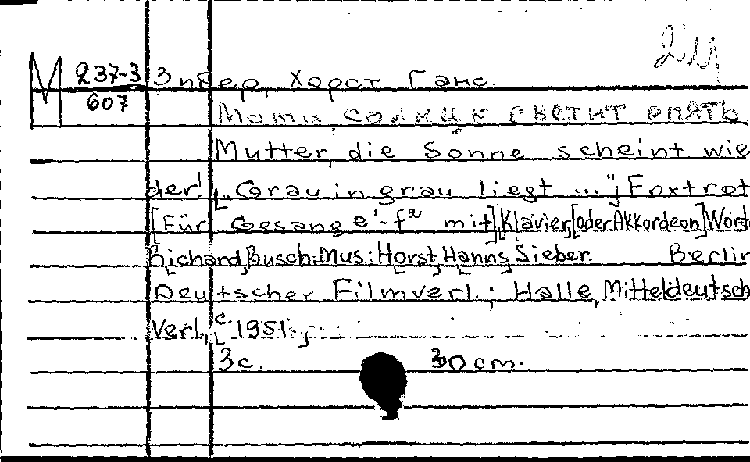 2М
М 237-3 Зибер, Хорст Ганс.
607
Мать, солнце светит опять.
Mutter, die Sonne scheint wie-
der! ["Grau in grau liegt ..."] Foxtrot
[Für Gesang e'-f² mit] Klavier [oder Akkordeon] Worte:
Richard Busch. Mus: Horst Hanns Sieber. Berlin
Deutscher Filmverl.; Halle, Mitteldeutsch
Verl., c 1951.
3c. 30cm.